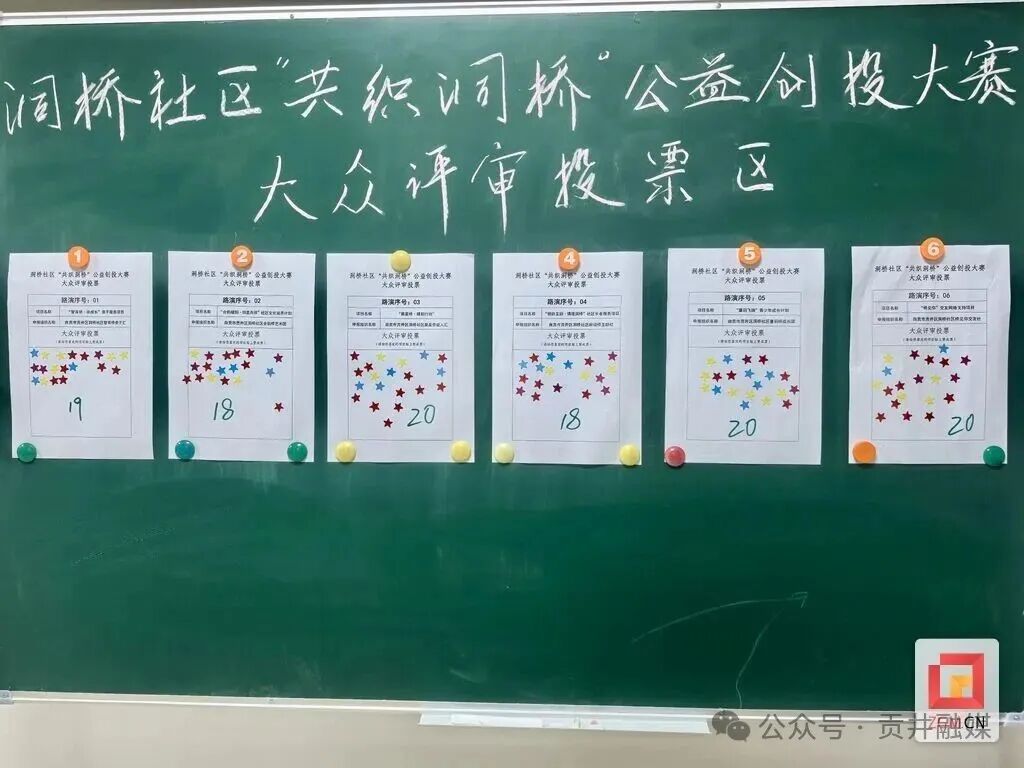 洞桥社区“共织洞桥”公益创投大赛
大众评审投票区
1
洞桥社区“共织洞桥”公益创投大赛
大众评审投票
路演序号：01
项目名称
申报组织名称
大众评审投票
19
2
洞桥社区“共织洞桥”公益创投大赛
大众评审投票
路演序号：02
项目名称
申报组织名称
大众评审投票
18
洞桥社区“共织洞桥”公益创投大赛
大众评审投票
路演序号：03
项目名称
申报组织名称
大众评审投票
20
4
洞桥社区“共织洞桥”公益创投大赛
大众评审投票
路演序号：04
项目名称
申报组织名称
大众评审投票
18
5
洞桥社区“共织洞桥”公益创投大赛
大众评审投票
路演序号：05
项目名称
申报组织名称
大众评审投票
20
6
洞桥社区“共织洞桥”公益创投大赛
大众评审投票
路演序号：06
项目名称
申报组织名称
大众评审投票
20
ZGM.CN
公众号·贡井融媒